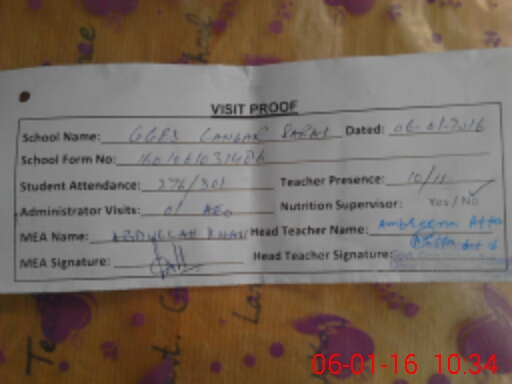 VISIT PROOF
School Name: GGES LANGAR SARAI Dated: 06-01-2016
School Form No:
Student Attendance: 276/301 Teacher Presence: 10/11
Administrator Visits: 01 AEO Nutrition Supervisor: Yes / No
MEA Name: ABDULLAH KHAN Head Teacher Name: Ambreena
MEA Signature: Head Teacher Signature:
06-01-16 10:34